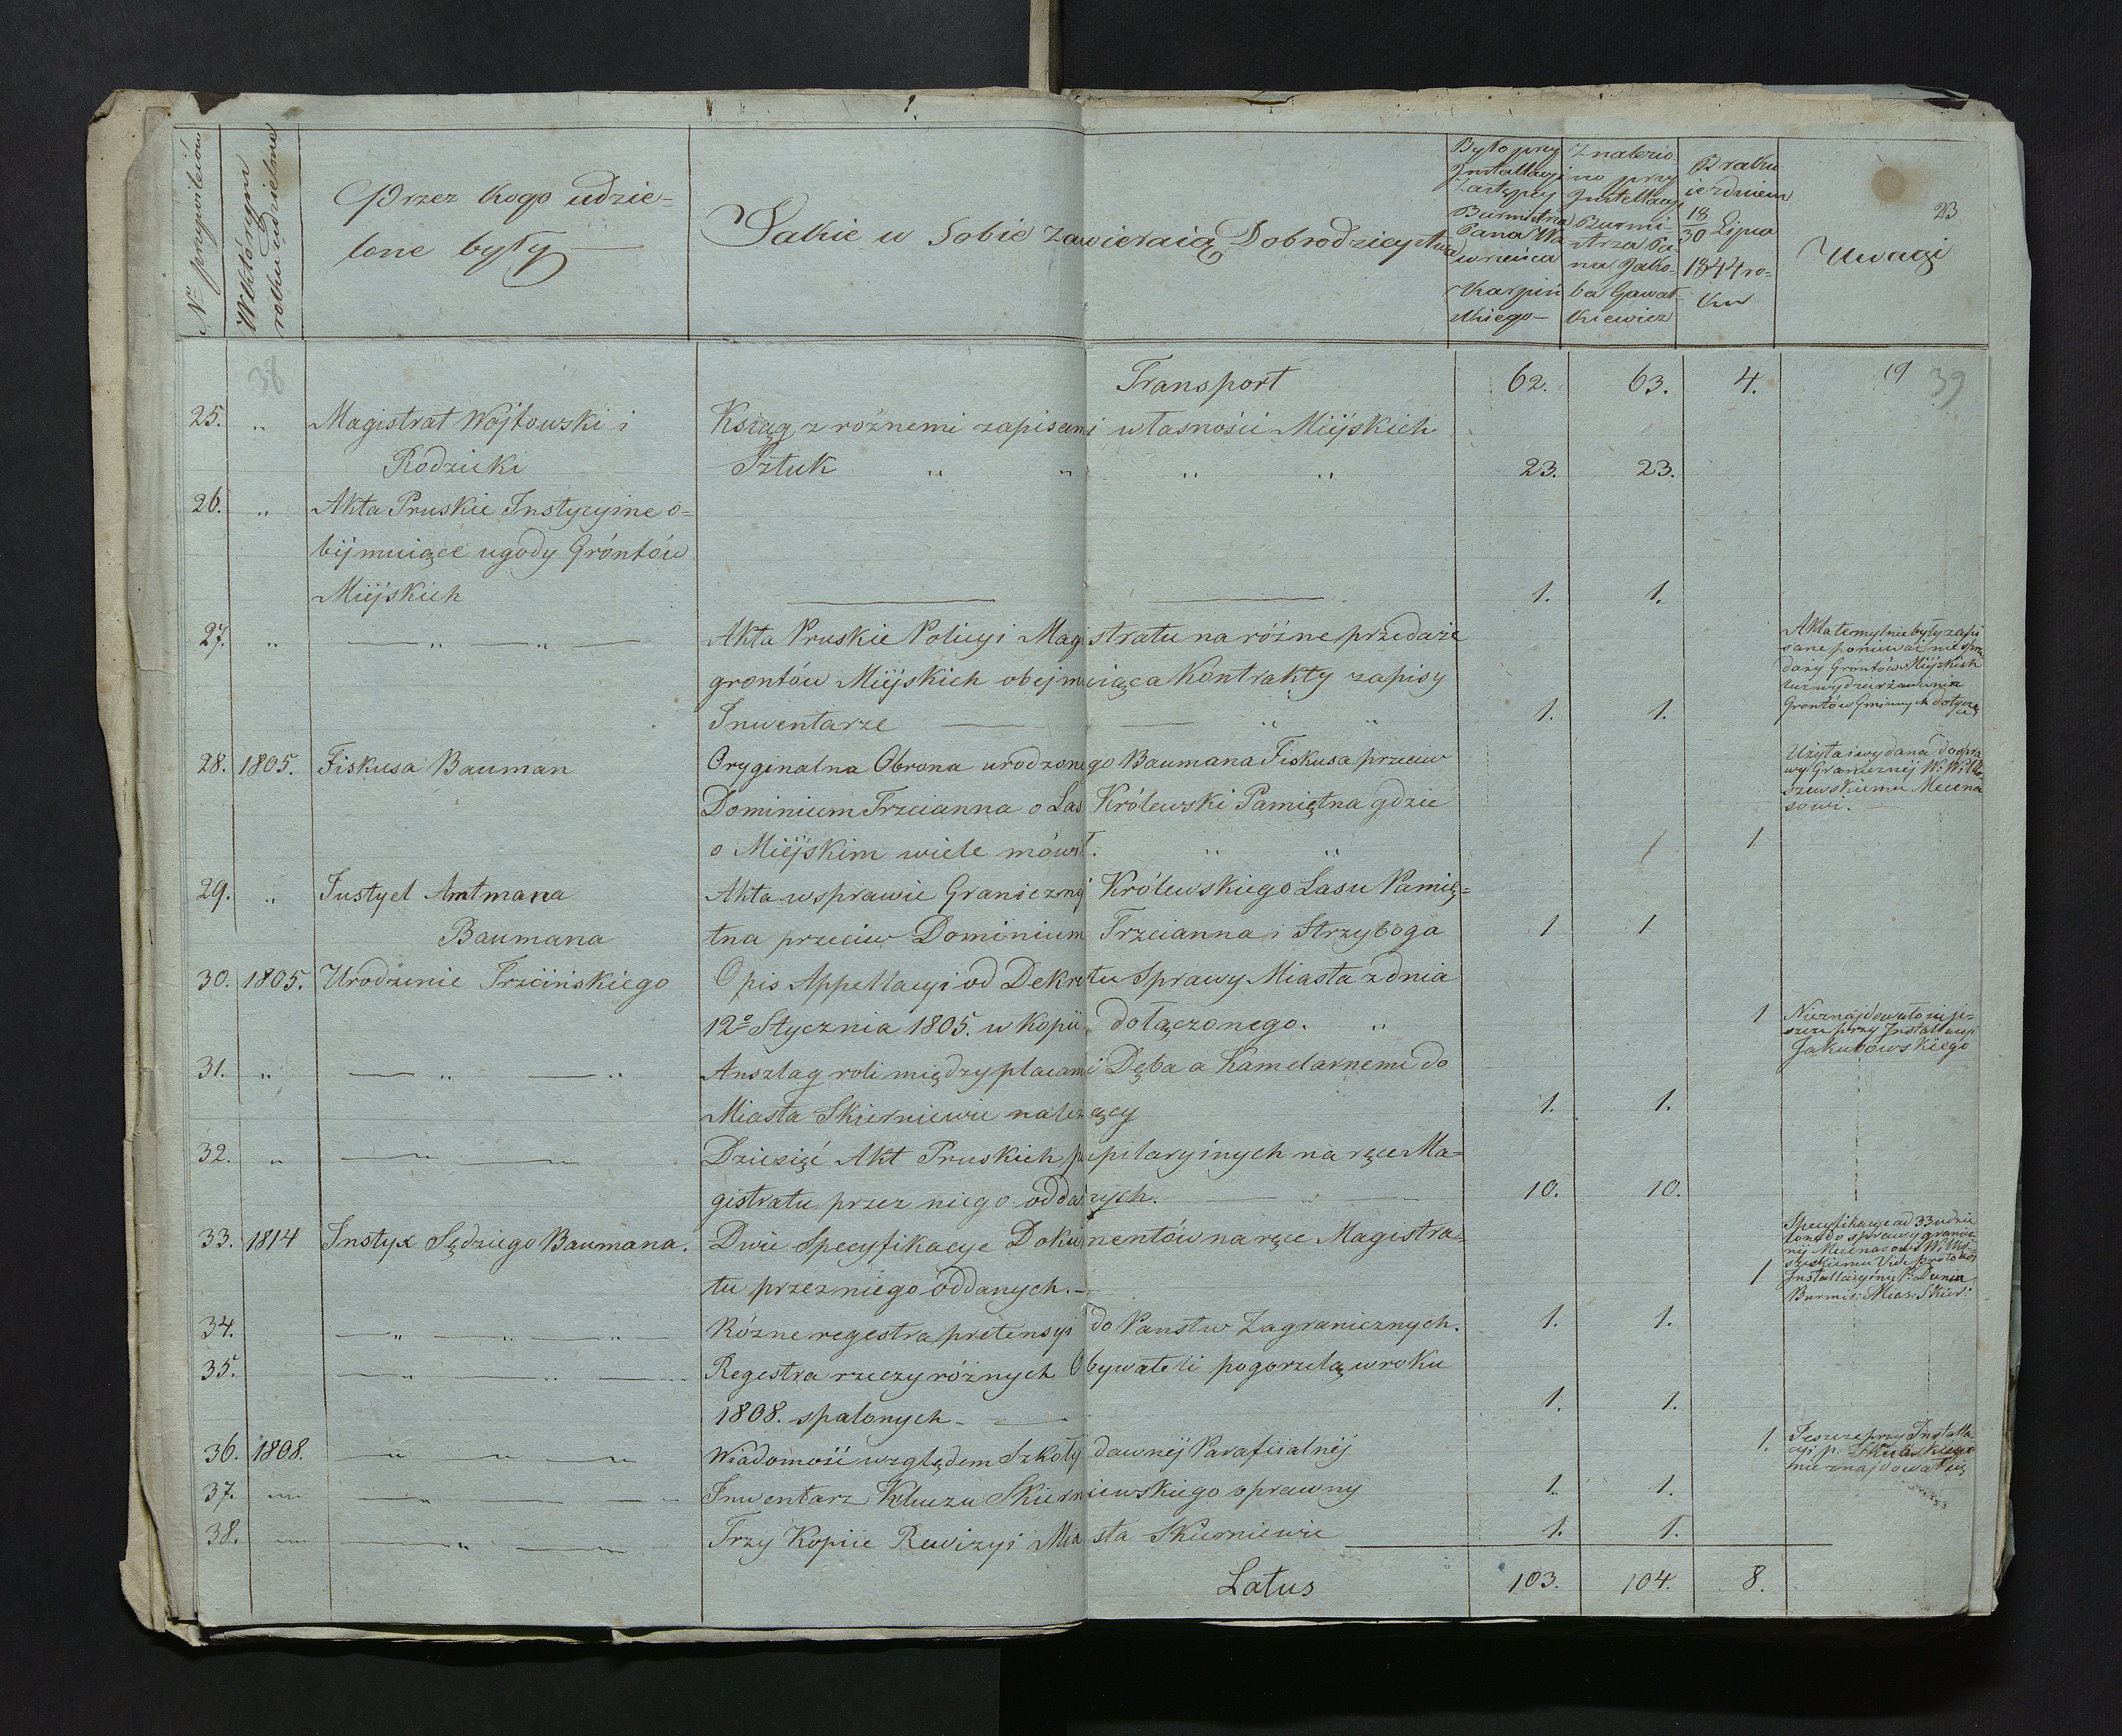 1.
Nr przywileiów
W którym
roku udzielone
Przez kogo udzie=
lone były
Jakie w Sobie zawieraią Dobrodzieystwa
Było przy
Installacyi
Zastępcy
Burmistrza
Pana Wa
wrzeńca
Karpiń
skiego—
Znalezio
no przy
Installacyi
Burmi-
strza Pa-
na Jako-
ba Gawat-
kiewicz
Brakuie
z dniem
18/30 Lipca
1844 ro-
ku
Uwagi
23
38
39
Transport 62. 63. 4. 19
25. „ Magistrat Wójtowski i Ksiąg z róznemi zapisami własności Miijskich
Rodzieki Sztuk „ „ „ „ 23. 23.
26. „ Akta Pruskie Instycyine o-
bijmuiące ugody Gróntów
Miijskich 1. 1.
27. „ — „ — „ — Akta Pruskie Policyi Magistratu na różne przedaże
grontów Miijskich obejmuiąca Kontrakty zapisy
Inwentarze — — „ „ 1. 1.
Akta te mylnie były zapi
sane poniewaź nie sprze
daży Grontów Miijskich
lecz wydzierżawienia
Grontów Gminnych dotyczą
28. 1805. Fiskusa Bauman Oryginalna Obrona urodzonego Baumana Fiskusa przeciw
Dominium Trzcianna o Las Królewski Pamiętna gdzie
o Miejskim wiele mówił. „ „ 1 1
Użyta i wydana do spra
wy Granicznéj W: Wilko-
szewskiemu Mecena
sowi. —
29. „ Justycl Amtmana Akta w sprawie Granicznej Królewskiego Lasu Pamię=
Baumana tna przeciw Dominium Trzcianna i Strzyboga 1 1
30. 1805. Urodzenie Trzcińskiego Opis Appellacyi od Dekretu Sprawy Miasta z dnia
12o Stycznia 1805. w Kopii dołączonego. „ 1
Nieznajdowało się je-
szcze przy Installacyi
Jakubowskiego
31. „ — „ — „ Anszlag roli między placami Dęba a Kamelarnemi do
Miasta Skierniewic należący 1. 1.
32. „ — „ — „ Dziesięć Akt Pruskich pupilaryinych na ręce Ma=
gistratu przez niego oddanych. — „ — 10. 10.
33. 1814 Instyx Sędziego Baumana. Dwie Specyfikacye Dokumentów na ręce Magistra-
tu przez niego oddanych. — 1
Specyfikacye ad 33 udzie
lone do sprawy granicz
néj Mecenasowi Wilko-
szewskiemu Vide protokół
Installacyiny P. Dunin
Burmis: Mias: Skier:
34. — „ — „ — „ Rózne regestra pretensyi do Panstw Zagranicznych. 1. 1.
35. — „ — „ — „ Regestra rzeczy różnych Obywateli pogorzelą w roku
1808. spalonych — 1. 1.
36. 1808. — „ — „ — „ Wiadomość względem Szkoły dawnéj Parafiialnéj 1.
Jeszcze przy Installa
cyi p.
nie znajdował się
37. — „ — „ — Inwentarz Kluczu Skierniewskiego oprawny 1. 1.
38. — „ — „ — Trzy Kopiie Rewizyi Miasta Skierniewic 1. 1.
Latus 103. 104. 8.